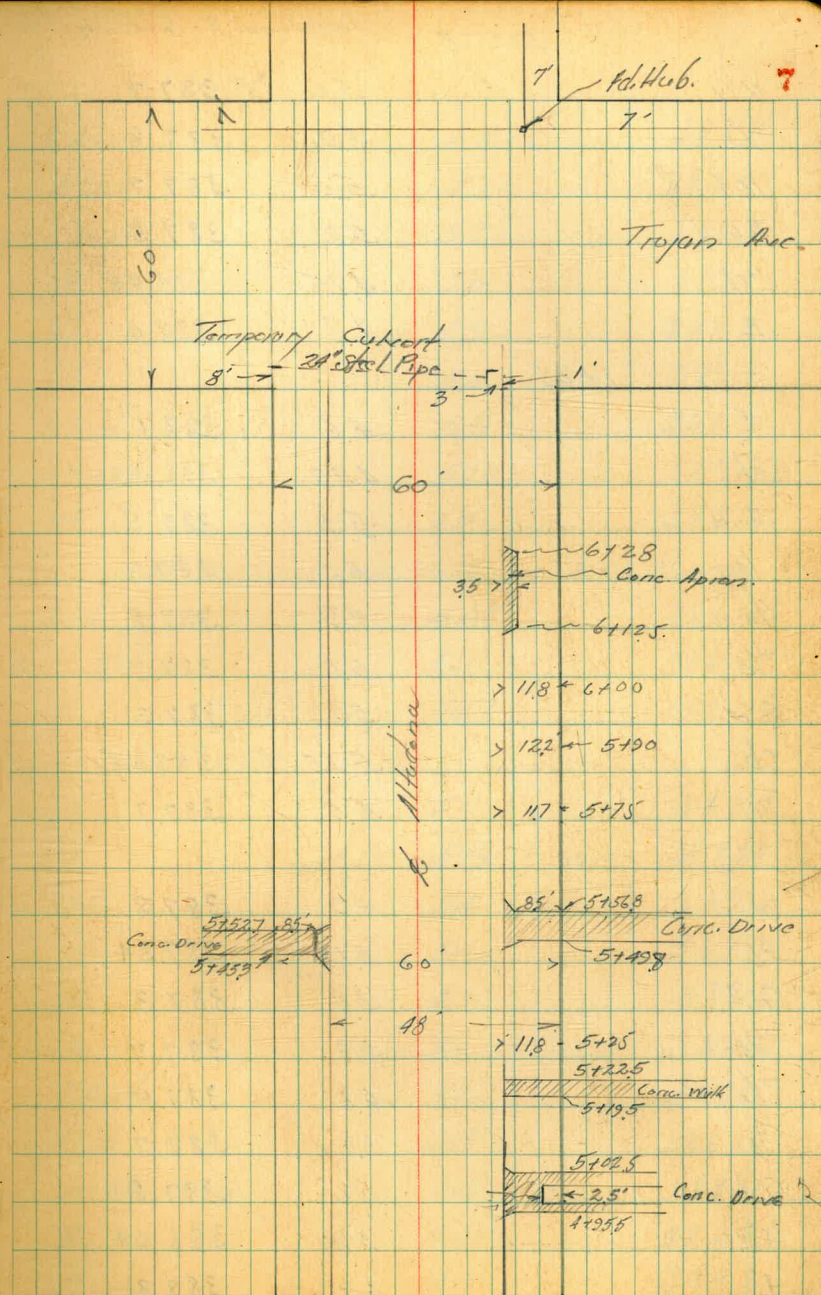 7
7'
Fd. Hub.
7'
7'
Trojan Ave.
60'
Temporary Culvert
24" Steel Pipe
8'
3'
1'
60'
6+28
Conc. Apron.
3.5
6+12.5
11.8 6+00
12.2 5+90
11.7 5+75
℄ Altadena
8.5' 5+56.8
Conc. Drive
5+49.8
5+52.7 8.5'
Conc. Drive
5+45.3
60'
48'
11.8 5+25
5+22.5
Conc. Walk
5+19.5
5+02.5
2.5' Conc. Drive
4+95.5